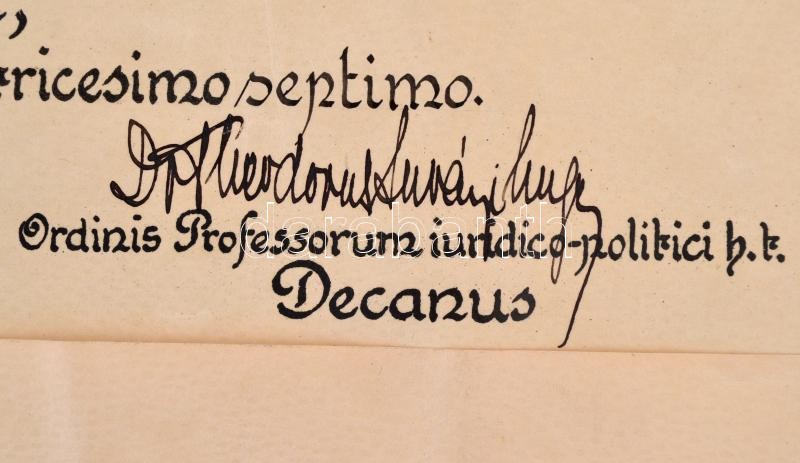 tricesimo septimo.
Dr Theodorus Surányi Unger
Ordinis Professorum iuridico-politici h. t.
Decanus
darabanth